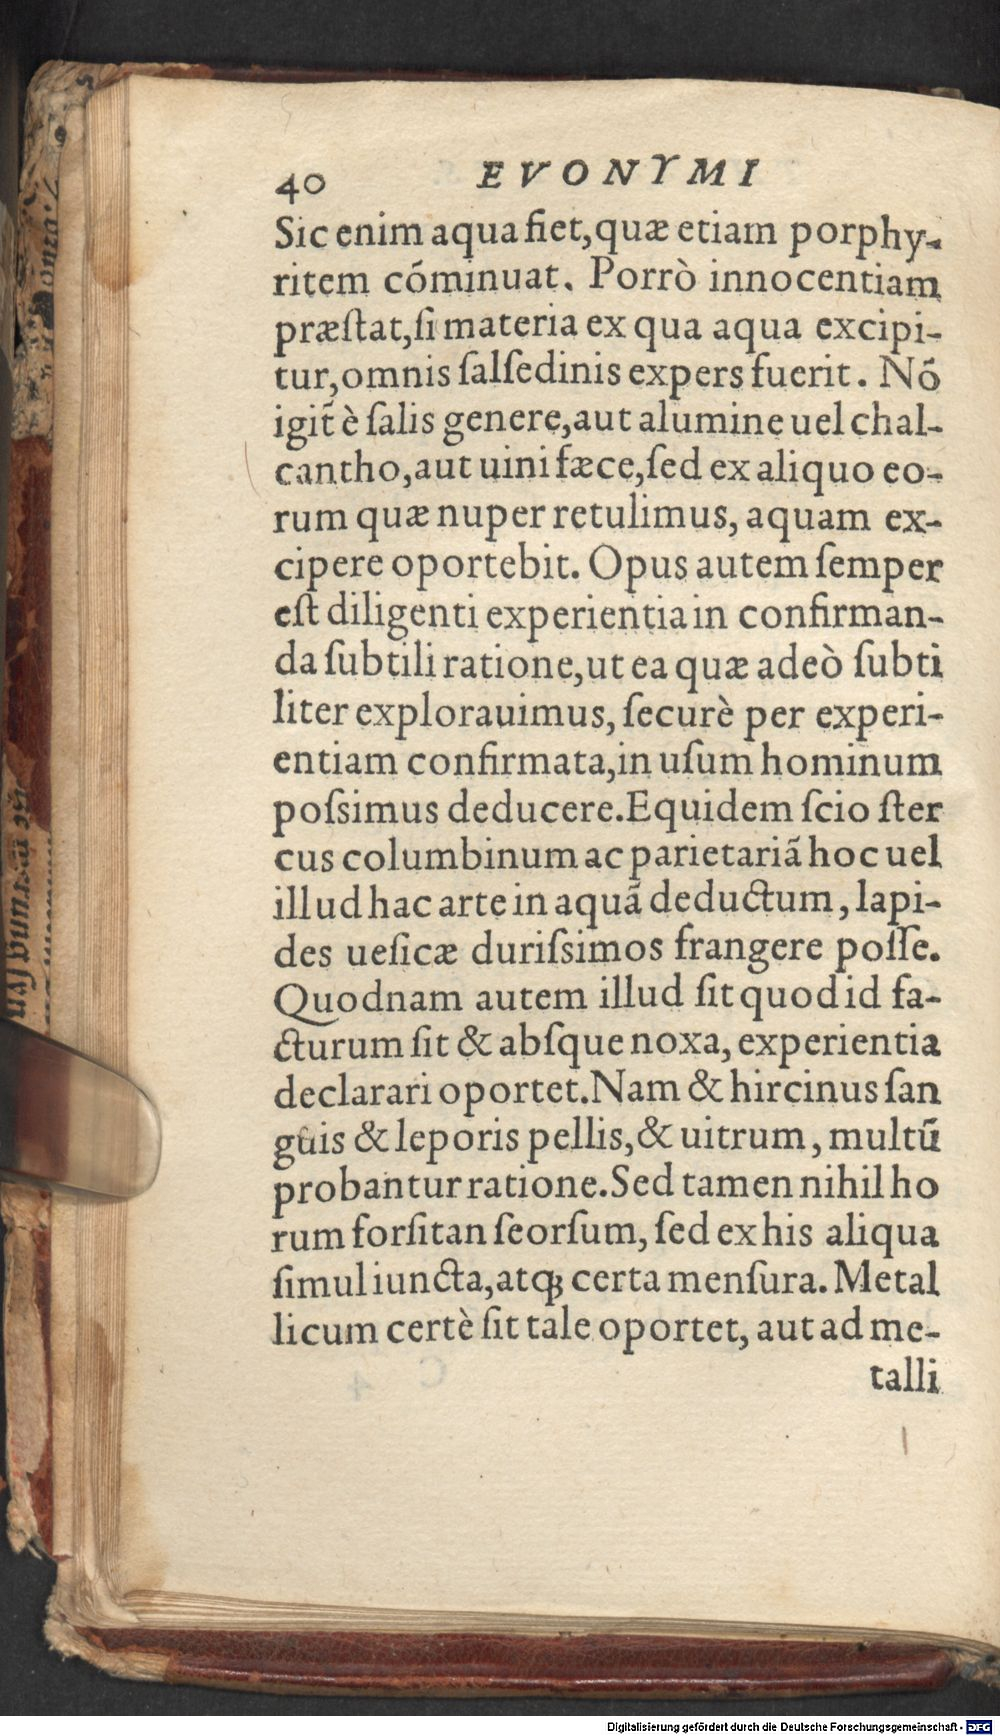 40 EVONYMI
Sic enim aqua fiet, quæ etiam porphy-
ritem cõminuat. Porrò innocentiam
præſtat, ſi materia ex qua aqua excipi-
tur, omnis ſalſedinis expers fuerit. Nõ
igit̃ è ſalis genere, aut alumine uel chal-
cantho, aut uini fæce, ſed ex aliquo eo-
rum quæ nuper retulimus, aquam ex-
cipere oportebit. Opus autem ſemper
eſt diligenti experientia in confirman-
da ſubtili ratione, ut ea quæ adeò ſubti
liter explorauimus, ſecurè per experi-
entiam confirmata, in uſum hominum
poſsimus deducere. Equidem ſcio ſter
cus columbinum ac parietariã hoc uel
illud hac arte in aquã deductum, lapi-
des ueſicæ duriſsimos frangere poſſe.
Quodnam autem illud ſit quod id fa-
cturum ſit & abſque noxa, experientia
declarari oportet. Nam & hircinus ſan
guis & leporis pellis, & uitrum, multũ
probantur ratione. Sed tamen nihil ho
rum forſitan ſeorſum, ſed ex his aliqua
ſimul iuncta, atq; certa menſura. Metal
licum certè ſit tale oportet, aut ad me-
talli
Digitalisierung gefördert durch die Deutsche Forschungsgemeinschaft - DFG